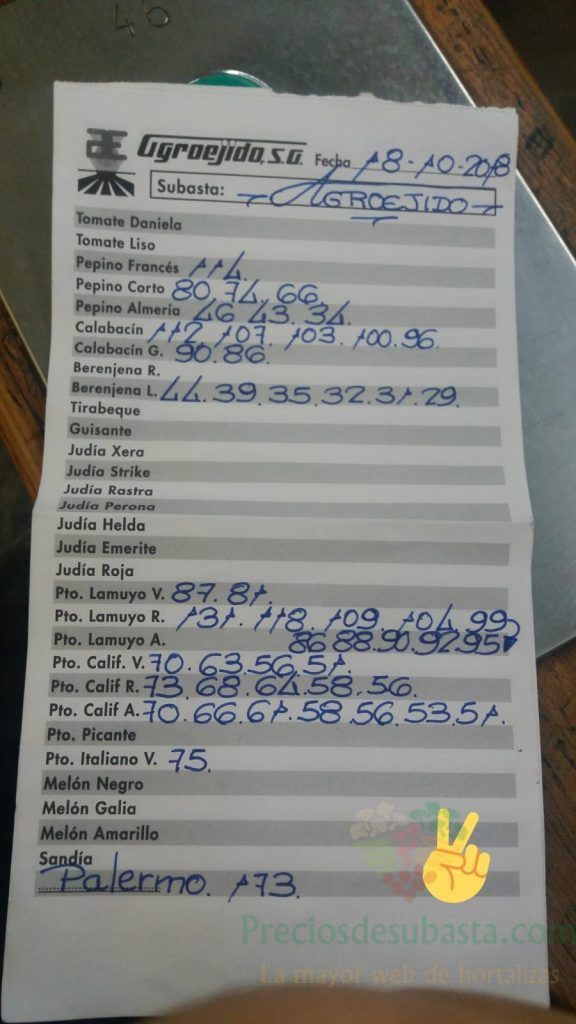 46
Æ Agroejido, S.A. Fecha 18-10-2018
Subasta: AGROEJIDO
Tomate Daniela
Tomate Liso
Pepino Francés 114.
Pepino Corto 80.74.66.
Pepino Almería 46.43.34.
Calabacín 112.107.103.100.96.
Calabacín G. 90.86.
Berenjena R.
Berenjena L. 44.39.35.32.31.29.
Tirabeque
Guisante
Judía Xera
Judía Strike
Judía Rastra
Judía Perona
Judía Helda
Judía Emerite
Judía Roja
Pto. Lamuyo V. 87.81.
Pto. Lamuyo R. 131.118.109.104.99
Pto. Lamuyo A. 86 88.90.92.95
Pto. Calif. V. 70.63.56.51.
Pto. Calif R. 73.68.64.58.56.
Pto. Calif A. 70.66.61.58.56.53.51.
Pto. Picante
Pto. Italiano V. 75.
Melón Negro
Melón Galia
Melón Amarillo
Sandía
Palermo. 173.
Preciosdesubasta.com
La mayor web de hortalizas